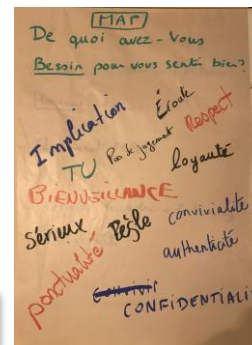 MAP
De quoi avez-vous
Besoin pour vous sentir bien?
Implication
Écoute
Respect
TU
Pas de jugement
loyauté
BIENVEILLANCE
Sérieux
Règle
convivialité
ponctualité
authenticité
CONFIDENTIALI